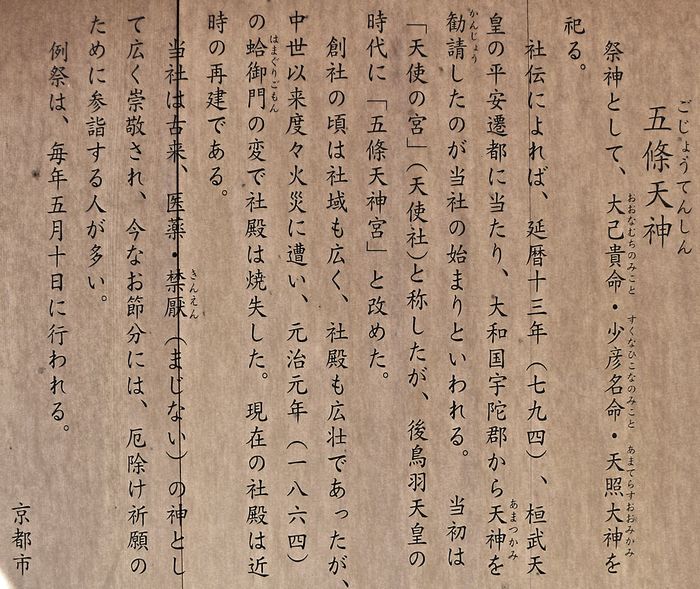 ごじょうてんしん
五條天神
おおなむちのみこと すくなひこなのみこと あまてらすおおみかみ
祭神として、大己貴命・少彦名命・天照大神を
祀る。
社伝によれば、延暦十三年（七九四）、桓武天
あまつかみ
皇の平安遷都に当たり、大和国宇陀郡から天神を
かんじょう
勧請したのが当社の始まりといわれる。当初は
「天使の宮」（天使社）と称したが、後鳥羽天皇の
時代に「五條天神宮」と改めた。
創社の頃は社域も広く、社殿も広壮であったが、
中世以来度々火災に遭い、元治元年（一八六四）
はまぐりごもん
の蛤御門の変で社殿は焼失した。現在の社殿は近
時の再建である。
きんえん
当社は古来、医薬・禁厭（まじない）の神とし
て広く崇敬され、今なお節分には、厄除け祈願の
ために参詣する人が多い。
例祭は、毎年五月十日に行われる。
京都市